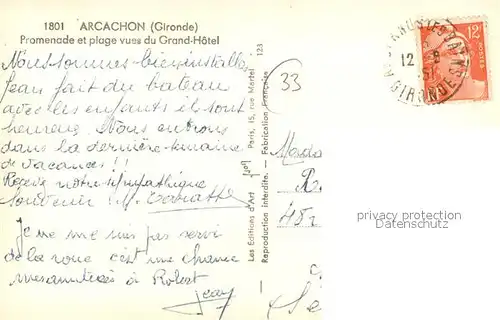 1801 ARCACHON (Gironde)
Promenade et plage vues du Grand-Hôtel
Nous sommes bien installés
Jean fait du bateau
avec les enfants ils sont
heureux. Nous entrons
dans la dernière semaine
de vacances !!
Recevez notre sympathique
souvenir M.
Je ne me suis pas servi
de la roue c'est une chance
mes amitiés à Robert
Jean
123
Les Editions d'Art Paris, 15, rue Martel
Reproduction interdite. - Fabrication Française
33
12
GIRONDE
12F
Mada
R.
48
privacy protection
Datenschutz